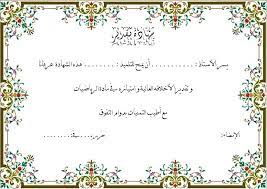 شهادة تقدير
يسر الأستاذ : . . . . . . . . . . أن يمنح التلميذ : . . . . . . . . . . هذه الشهادة عربونا
وتقديرا لأخلاقه العالية واستيعابه مادة الرياضيات
مع أطيب التمنيات بدوام التفوق
الإمضاء: حرر بـ: . . . . . . . . . .